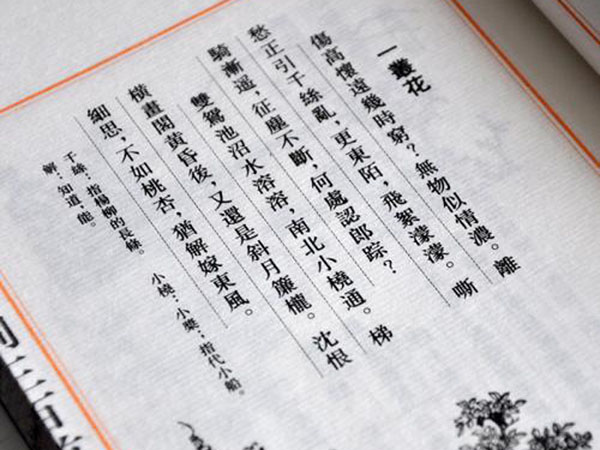 一叢花
傷高懷遠幾時窮？無物似情濃。離
愁正引千絲亂，更東陌，飛絮濛濛。嘶
騎漸遥，征塵不斷，何處認郎踪？
雙鴛池沼水溶溶，南北小橈通。梯
橫畫閣黃昏後，又還是斜月簾櫳。沈恨
細思，不如桃杏，猶解嫁東風。
千絲：指楊柳的長條。　小橈：小槳，指代小船。
解：知道，能。